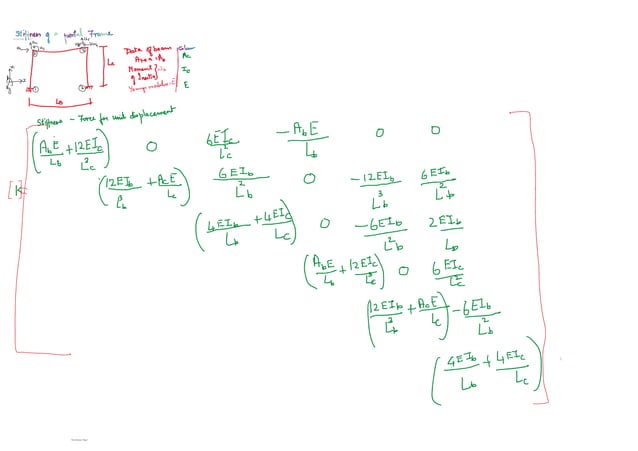 Stiffness of a portal Frame
Data of beam Column
Area = Ab Ac
Moment of Inertia } = Ib Ic
Young's modulus = E E
Lc
Lb
Stiffness - Force for unit displacement
[K]=
(AbE/Lb + 12EIc/Lc^3) 0 6EIc/Lc^2 -AbE/Lb 0 0
(12EIb/Lb^3 + AcE/Lc) 6EIb/Lb^2 0 -12EIb/Lb^3 6EIb/Lb^2
(4EIb/Lb + 4EIc/Lc) 0 -6EIb/Lb^2 2EIb/Lb
(AbE/Lb + 12EIc/Lc^3) 0 6EIc/Lc^2
(12EIb/Lb^3 + AcE/Lc) -6EIb/Lb^2
(4EIb/Lb + 4EIc/Lc)